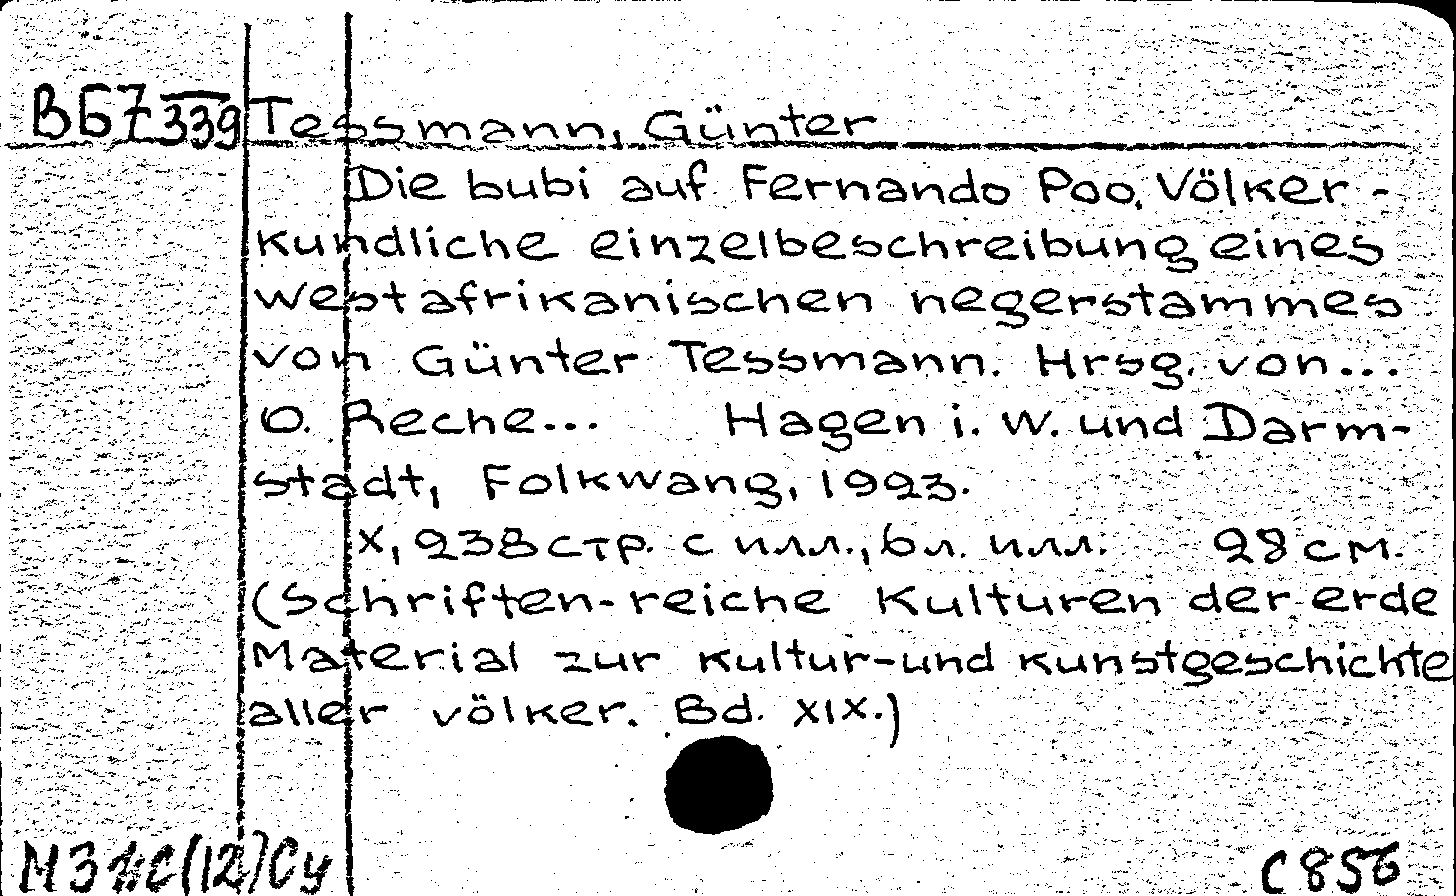 ВБ7 339 Tessmann, Günter
Die bubi auf Fernando Poo. Völker-
kundliche einzelbeschreibung eines
westafrikanischen negerstammes
von Günter Tessmann. Hrsg. von...
O. Reche... Hagen i. W. und Darm-
stadt, Folkwang, 1923.
X, 238 стр. с илл., 6 л. илл. 28 см.
(Schriften-reiche Kulturen der erde
Material zur kultur-und kunstgeschichte
aller völker. Bd. XIX.)
C 856